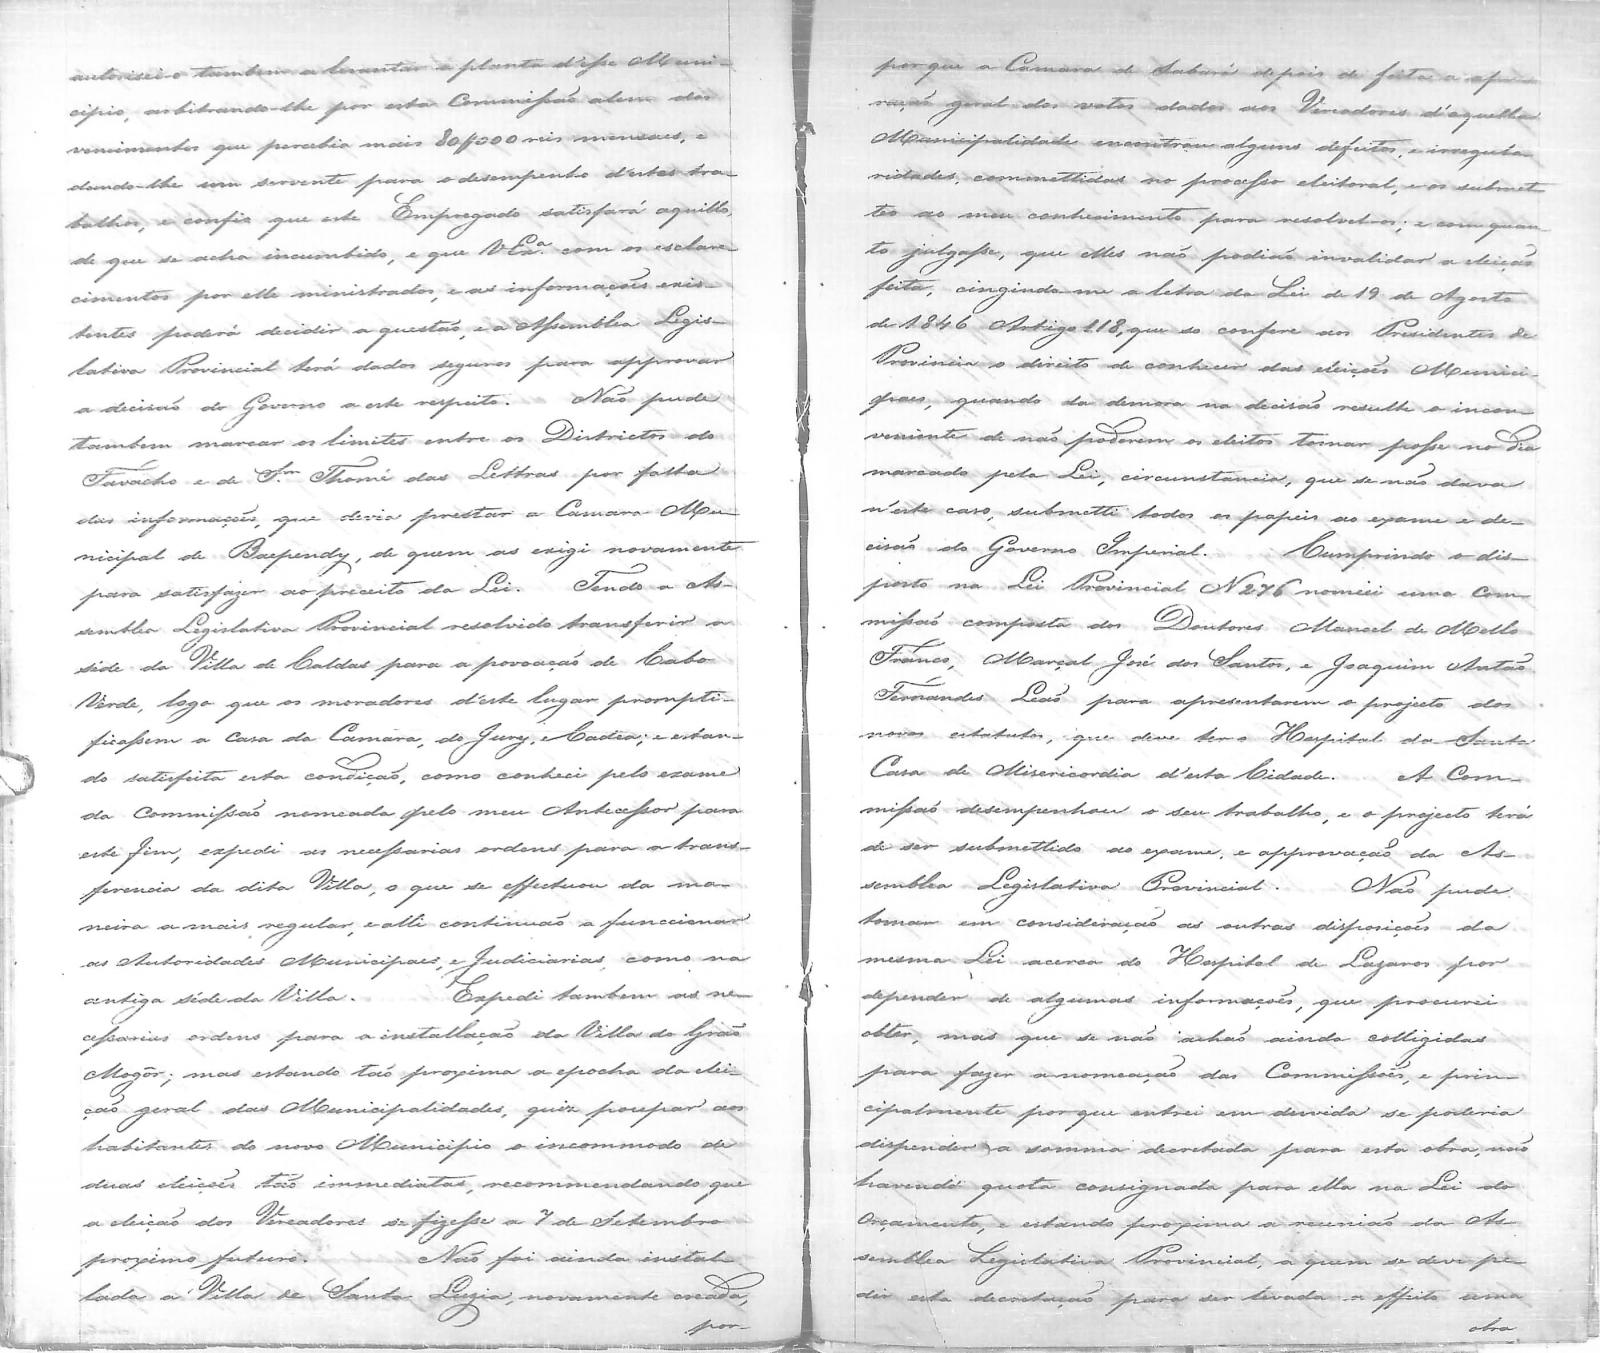 autorisei-o tambem a levantar a planta d'esse Muni-
cipio, arbitrando-lhe por esta Commissão alem dos
vencimentos que percebia mais 80$000 reis mensaes, e
dando-lhe um servente para o desempenho d'estes tra-
balhos, e confio que este Empregado satisfará aquillo,
de que se acha incumbido, e que V Exª. com os esclare-
cimentos por elle ministrados, e as informações exis-
tentes poderá decidir a questão, e a Assemblea Legis-
lativa Provincial terá dados seguros para approvar
a decisão do Governo a este respeito. Não pude
tambem marcar os limites entre os Districtos do
Favacho e de S.m Thomé das Lettras por falta
das informações, que devia prestar a Camara Mu-
nicipal de Baependy, de quem as exigi novamente
para satisfazer ao preceito da Lei. Tendo a As-
semblea Legislativa Provincial resolvido transferir a
séde da Villa de Caldas para a povoação de Cabo
Verde, logo que os moradores d'este lugar prompti-
ficassem a Casa da Camara, do Jury, e Cadea; e estan-
do satisfeita esta condição, como conheci pelo exame
da Commissão nomeada pelo meu Antecessor para
este fim, expedi as necessarias ordens para a trans-
ferencia da dita Villa, o que se effectuou da ma-
neira a mais regular, e alli continuão a funccionar
as Autoridades Municipaes, e Judiciarias, como na
antiga séde da Villa. Expedi tambem as ne-
cessarias ordens para a installação da Villa do Grão
Mogôr; mas estando tão proxima a epocha da elei-
ção geral das Municipalidades, quiz poupar aos
habitantes do novo Municipio o incommodo de
duas eleições tão immediatas, recommendando que
a eleição dos Vereadores se fizesse a 7 de Setembro
proximo futuro. Não foi ainda instal-
lada a Villa de Santa Luzia, novamente creada,
por-
porque a Camara de Sabará depois de feita a apu-
ração geral dos votos dados aos Vereadores d'aquella
Municipalidade encontrou alguns defeitos, e irregula-
ridades, commettidas no processo eleitoral, e os submet-
teo ao meu conhecimento para resolvel-os; e com quan-
to julgasse, que elles não podião invalidar a eleição
feita, cingindo-me a letra da Lei de 19 de Agosto
de 1846 Artigo 118, que so confere aos Presidentes de
Provincia o direito de conhecer das eleições Munici-
paes, quando da demora na decisão resulte o incon-
veniente de não poderem os eleitos tomar posse no dia
marcado pela Lei, circunstancia, que se não dava
n'este caso, submetti todos os papeis ao exame e de-
cisão do Governo Imperial. Cumprindo o dis-
posto na Lei Provincial N 276 nomeei uma Com-
missão composta dos Doutores Manoel de Mello
Franco, Marçal José dos Santos, e Joaquim Antão
Fernandes Leão para apresentarem o projecto dos
novos estatutos, que deve ter o Hospital da Santa
Casa de Misericordia d'esta Cidade. A Com-
missão desempenhou o seu trabalho, e o projecto terá
de ser submettido ao exame, e approvação da As-
semblea Legislativa Provincial. Não pude
tomar em consideração as outras disposições da
mesma Lei acerca do Hospital de Lazaros por
depender de algumas informações, que procurei
obter, mas que se não achão ainda colligidas
para fazer a nomeação das Commissões, e prin-
cipalmente porque entrei em duvida se poderia
dispender a somma decretada para esta obra, não
havendo quota consignada para ella na Lei do
Orçamento, e estando proxima a reunião da As-
semblea Legislativa Provincial, a quem se deve pe-
dir esta decretação para ser levada a effeito uma
obra